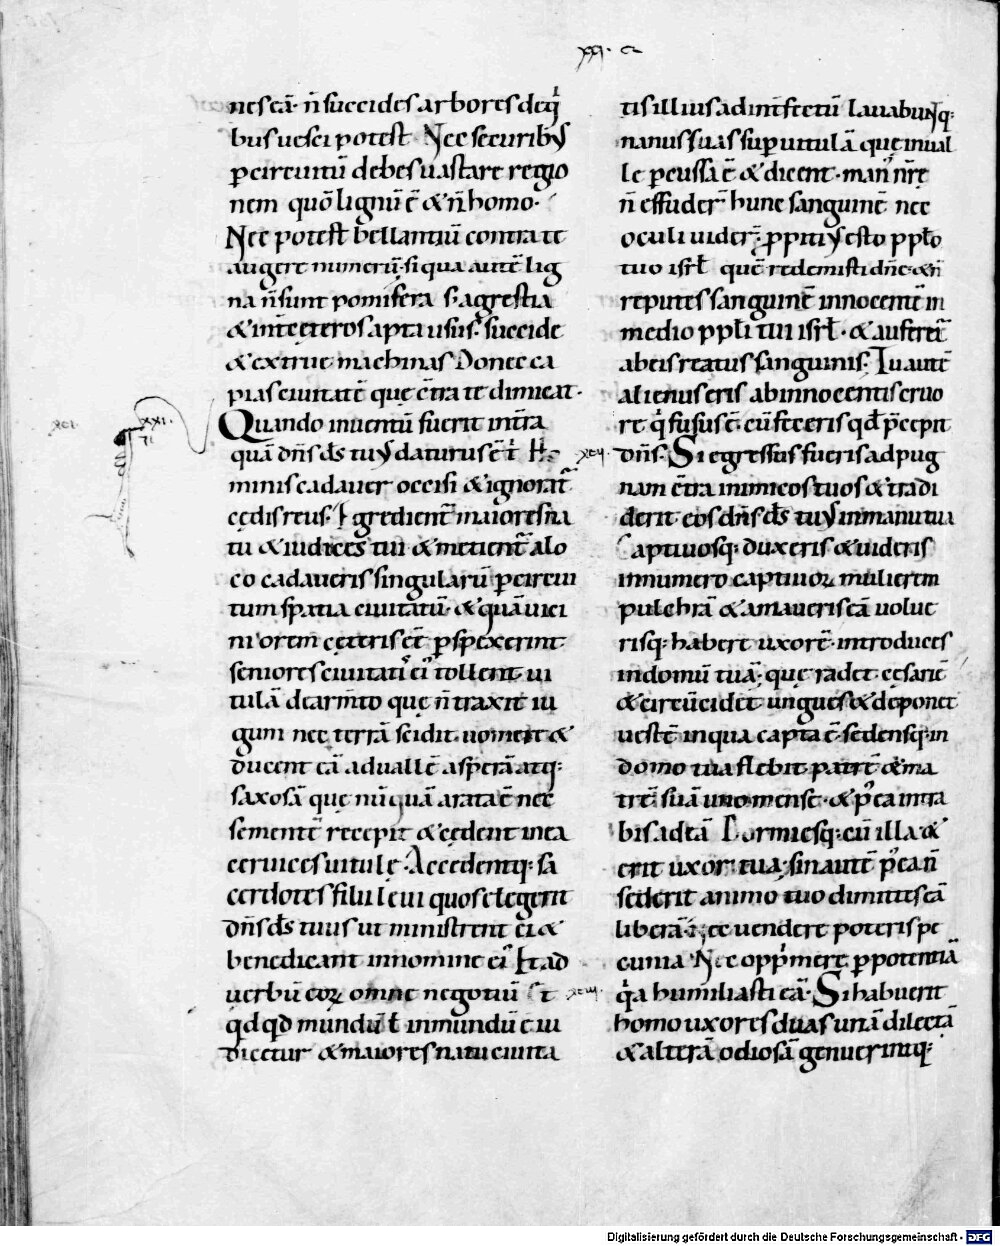 XXI. c.
nes eā· n̄ succides arbores de qͥ
bus uesci potest· Nec securibꝰ
ꝑ circuitū debes uastare regio
nem quō lignū ē & n̄ homo·
Nec potest bellantiū contra te
augere numerū· si qua autē lig
na n̄ sunt pomifera s; agrestia
& in cęteros apta usus· succide
& extrue machinas Donec ca
pias ciuitatē quę c̄tra te dimicat·
Quando inuentū fuerit in tr̄a
quā dn̄s ds̄ tuꝰ daturus ē tͥ Ho
minis cadauer occisi & ignorat̄
cędis reus· Egredient̄ maiores na
tu & iudices tui & metient̄ a lo
co cadaueris singularū ꝑ circui
tum spatia ciuitatū· & quā uici
niorem cęteris eē ꝑspexerint
seniores ciuitatiˀ eiˀ tollent· ui
tulā de armto quę n̄ traxit iu
gum nec terrā scidit uomere &
ducent eā ad uallē asperā atq;
saxosā quę nūquā arata ē nec
sementē recepit & cędent in ea
ceruices uitulę· Accedentq; sa
cerdotes filii leui quos elegerit
dn̄s ds̄ tuus ut ministrent ei &
benedicant in nomine eiˀ Et ad
uerbū eoꝝ omne negotiū
qͩ qd mundū ł inmundū ē iu
dicetur & maiores natu ciuita
XXI.
XCI.
tis illius ad int̄fectū lauabunt̄q;
manus suas suꝑ uitulā quę in ual
le ꝑcussa ē & dicent· manˀ nr̄ę
n̄ effuder̄ hunc sanguinē nec
oculi uider̄· ꝓpitiꝰ esto pplo
tuo isrł quē redemisti dn̄e· & n̄
reputes sanguinē innocentē in
medio ppli tui isrł· & auferet̄
ab eis reatus sanguinis· Tu autē
alienus eris ab innocentis cruo
re qͥ fusus ē· cū feceris qd p̄cepit
dn̄s· Si egressus fueris ad pug
XCII.
nam c̄tra inimicos tuos & tradi
derit eos dn̄s ds̄ tuꝰ in manu tua
Captiuosq; duxeris & uideris
in numero captiuoꝝ mulierem
pulchrā & amaueris eā uolue
risq; habere uxorē· introduces
in domū tuā· quę radet cęsariē
& circūcidet ungues & deponet
uestē in qua capta ē· sedensq; in
domo tua flebit patrē & ma
trē suā uno mense· & pͦ ea intra
bis ad eā Dormiesq; cū illa &
erit uxor tua· sin autē pͦea n̄
sederit animo tuo dimittis eā
liberā· Nec uendere poteris pe
cunia· Nec oppͥmere ꝑ potentiā
qͥa humiliasti eā· Si habuerit
XCIII.
homo uxores duas unā dilectā
& alterā odiosā genuerintq;
Digitalisierung gefördert durch die Deutsche Forschungsgemeinschaft - DFG